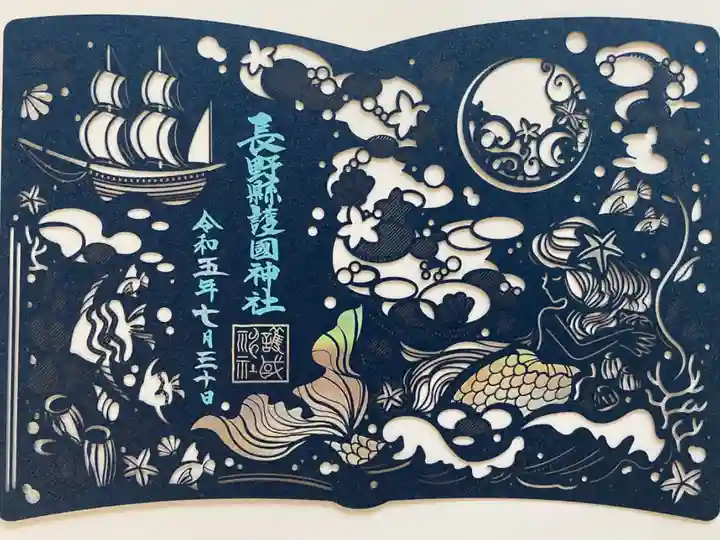 長野縣護國神社
令和五年七月三十日